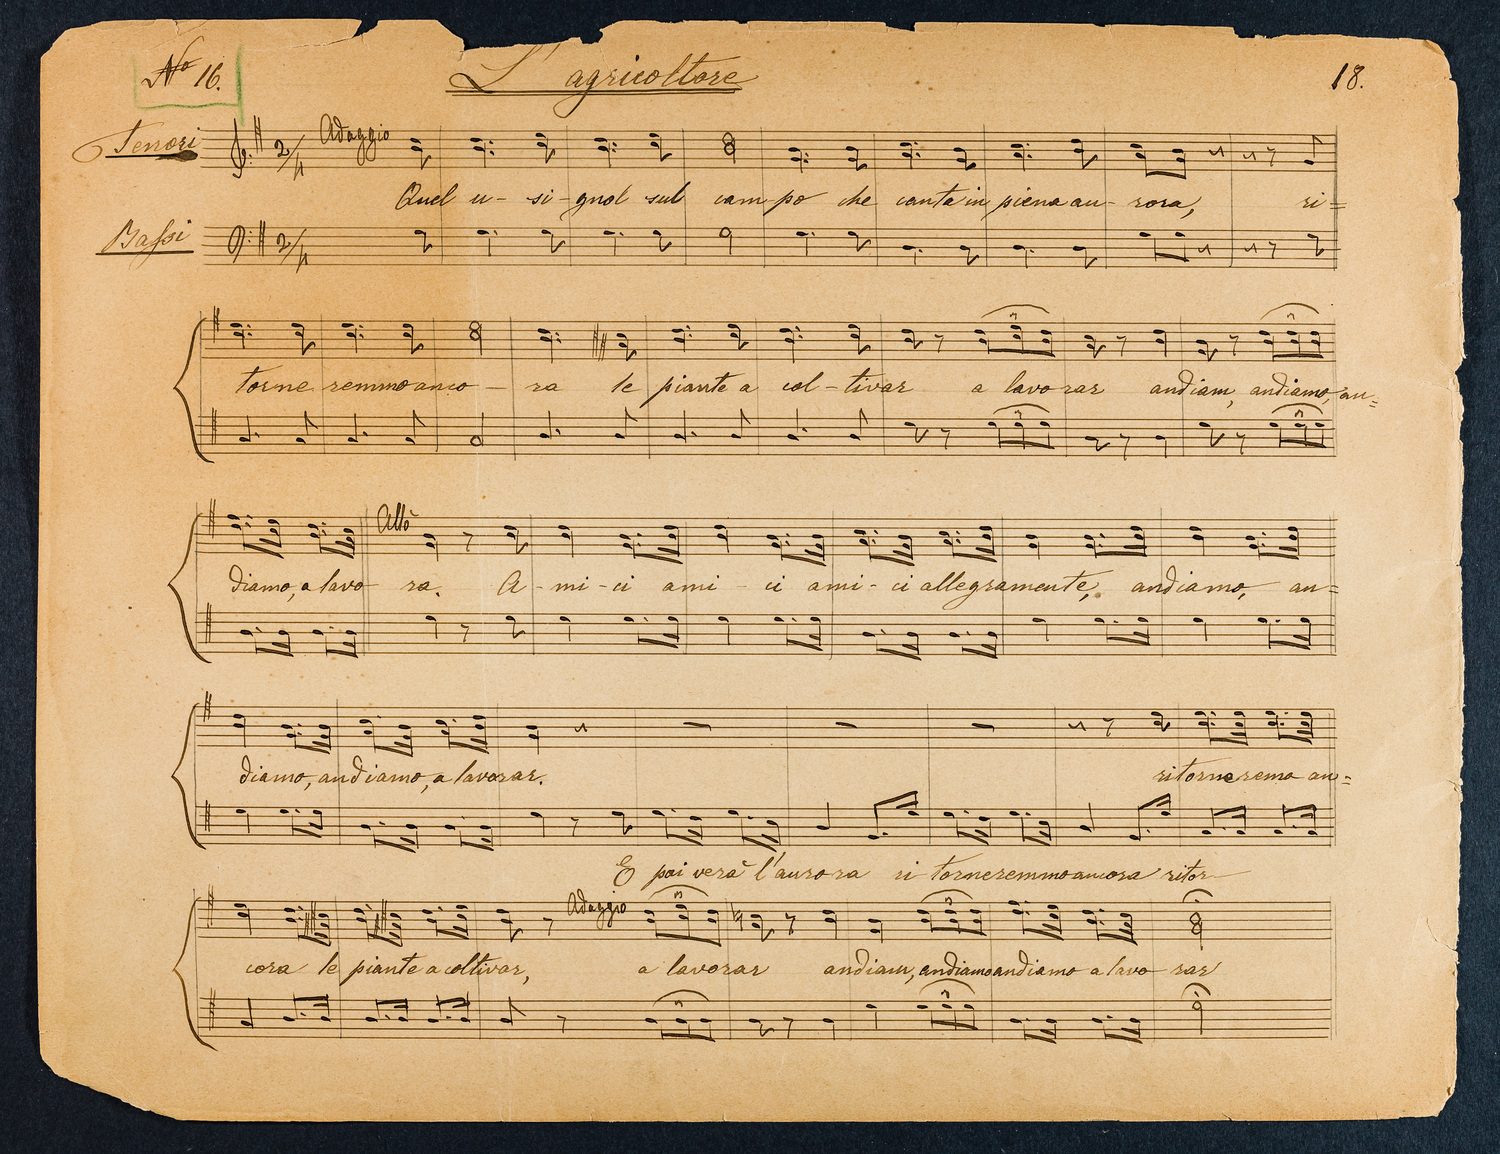 No 16.
L'agricoltore
18.
Tenori
Adagio
Quel u- si-gnol sul cam-po che canta in piena au- rora, ri=
Bassi
torne remmo anco - ra le piante a col-tivar a lavorar andiam, andiamo, an=
diamo, a lavo ra.
Allo
A-mi-ci ami-ci ami-ci allegramente, andiamo, an=
diamo, andiamo, a lavorar. ritorneremo an=
E poi verà l'aurora ri torneremmo ancora ritor
Adaggio
cora le piante a coltivar, a lavorar andiam, andiamo andiamo a lavo rar